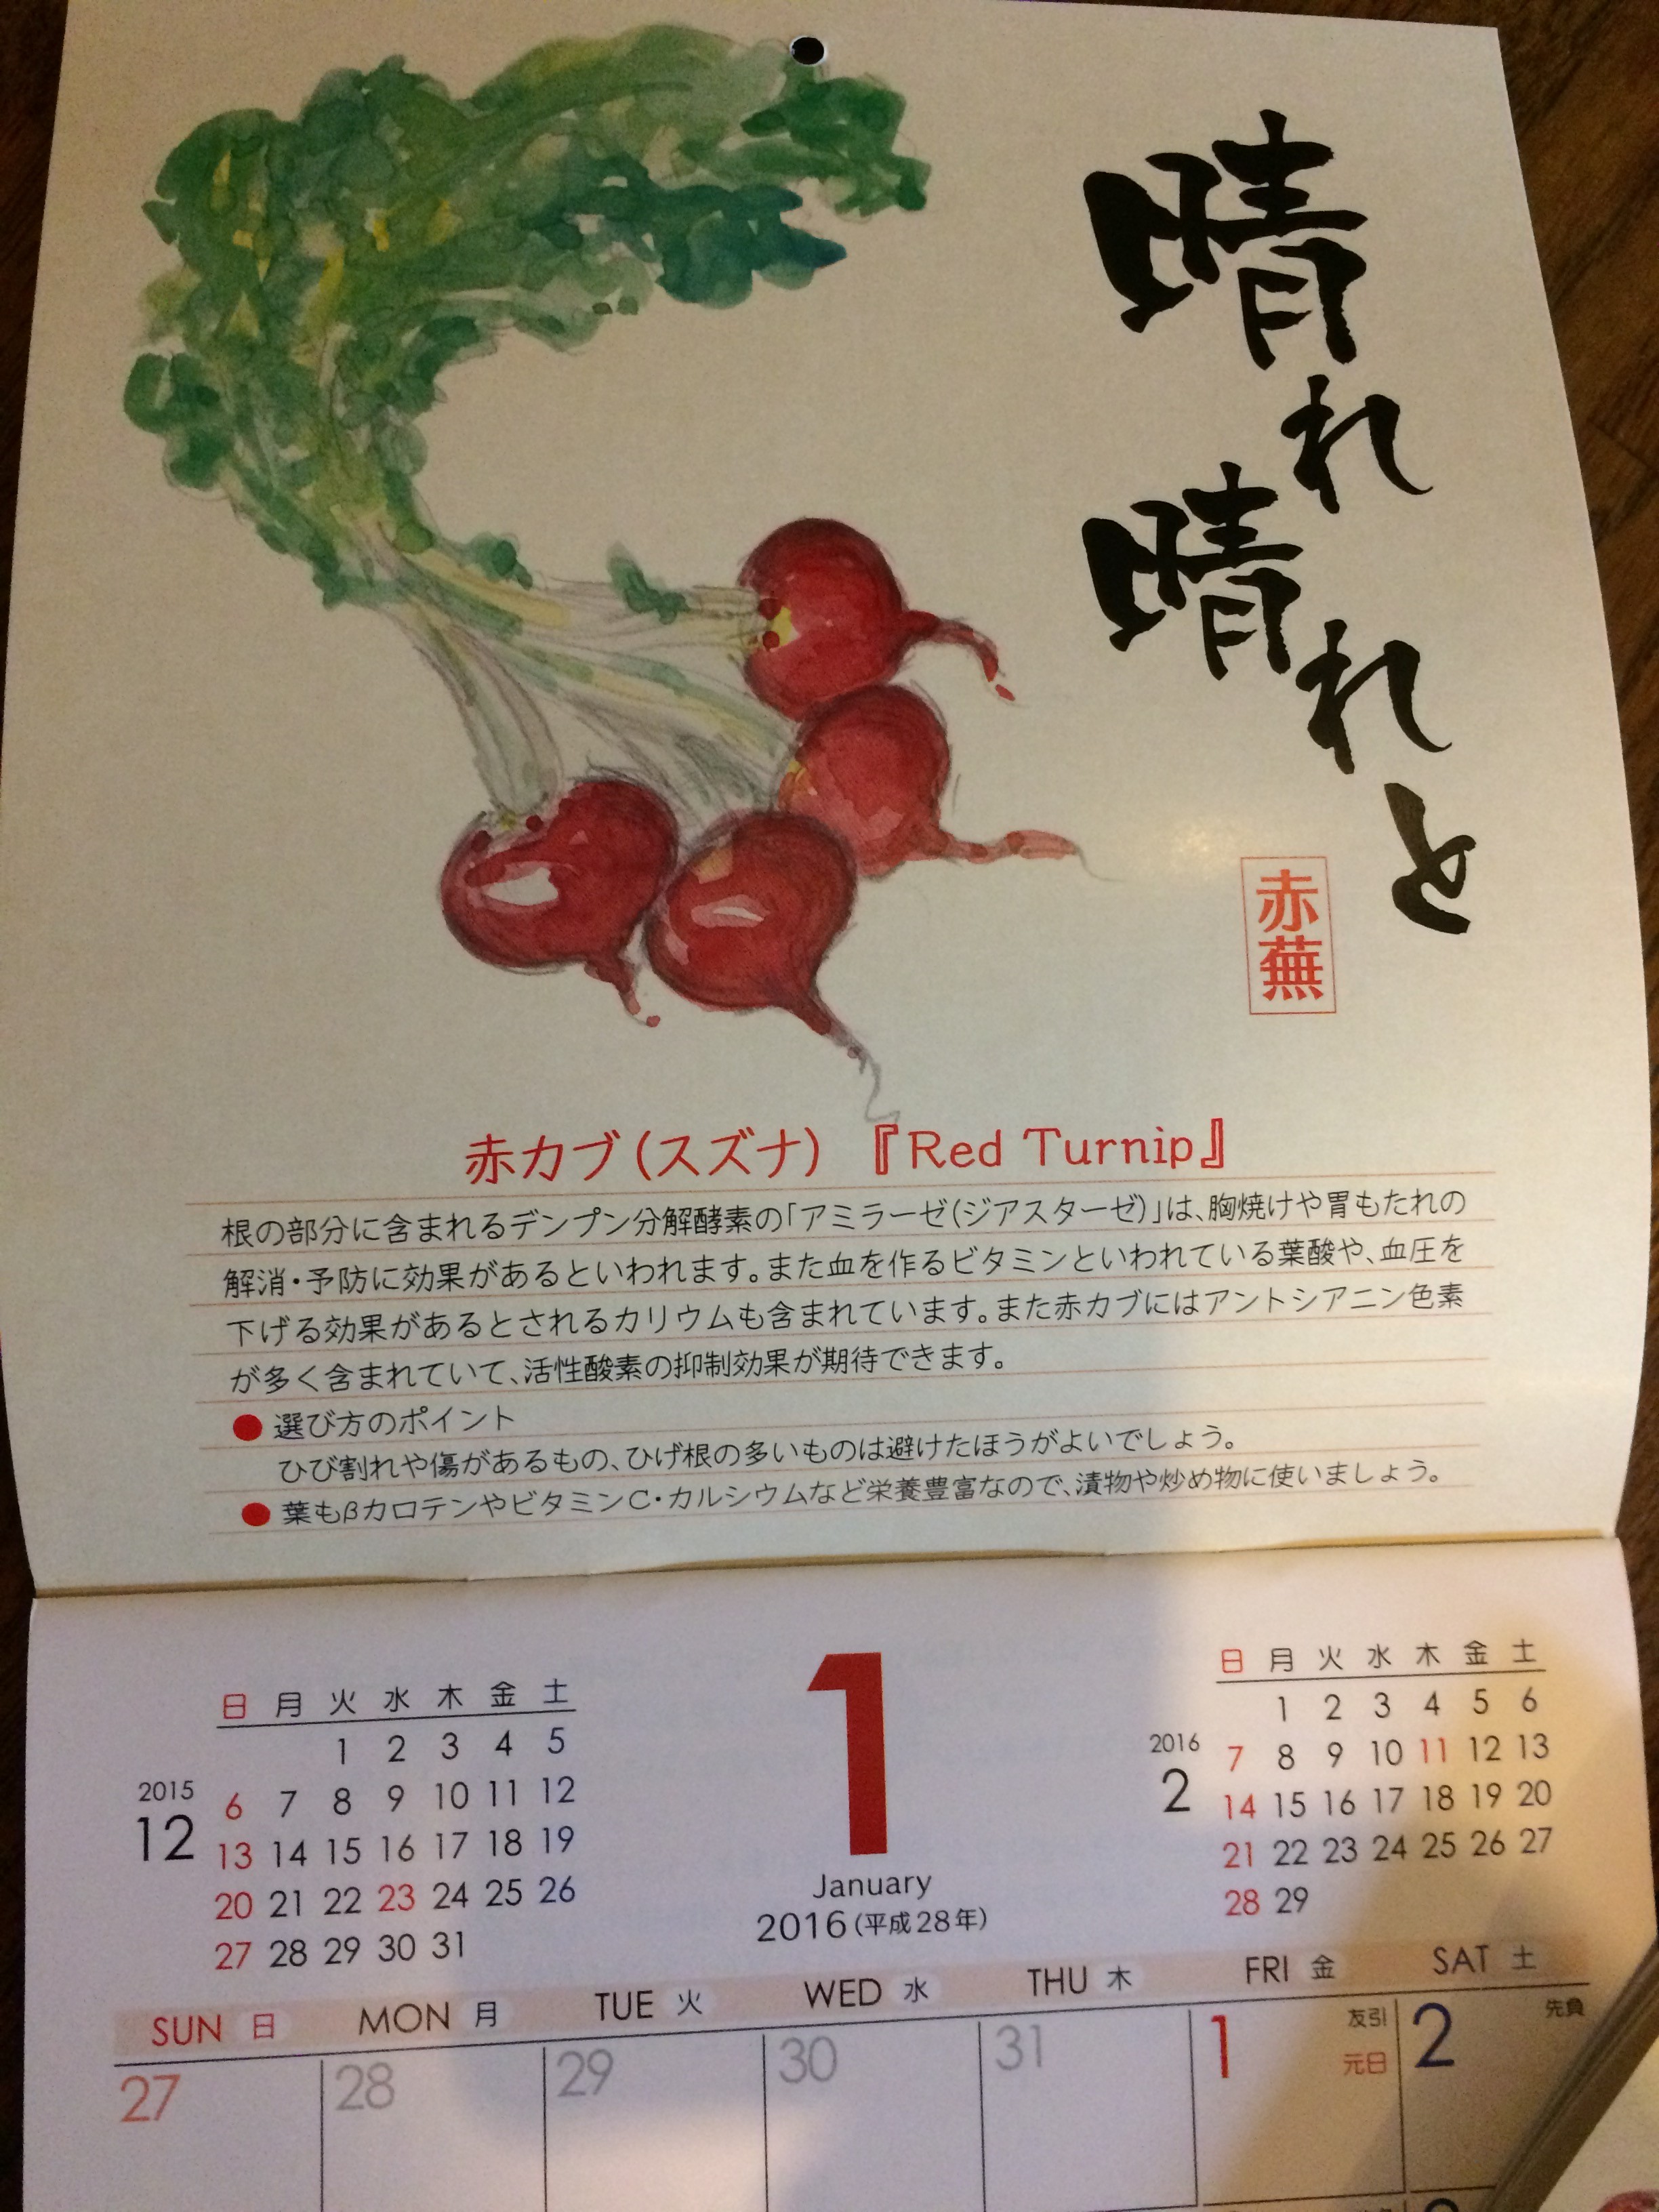 晴れ
晴れと
赤蕪
赤カブ(スズナ)『Red Turnip』
根の部分に含まれるデンプン分解酵素の「アミラーゼ(ジアスターゼ)」は、胸焼けや胃もたれの
解消・予防に効果があるといわれます。また血を作るビタミンといわれている葉酸や、血圧を
下げる効果があるとされるカリウムも含まれています。また赤カブにはアントシアニン色素
が多く含まれていて、活性酸素の抑制効果が期待できます。
● 選び方のポイント
ひび割れや傷があるもの、ひげ根の多いものは避けたほうがよいでしょう。
● 葉もβカロテンやビタミンC・カルシウムなど栄養豊富なので、漬物や炒め物に使いましょう。
2015
12
日 月 火 水 木 金 土
1 2 3 4 5
6 7 8 9 10 11 12
13 14 15 16 17 18 19
20 21 22 23 24 25 26
27 28 29 30 31
1
January
2016(平成28年)
2016
2
日 月 火 水 木 金 土
1 2 3 4 5 6
7 8 9 10 11 12 13
14 15 16 17 18 19 20
21 22 23 24 25 26 27
28 29
SUN 日 MON 月 TUE 火 WED 水 THU 木 FRI 金 SAT 土
27 28 29 30 31 1 友引 2 先負
元日